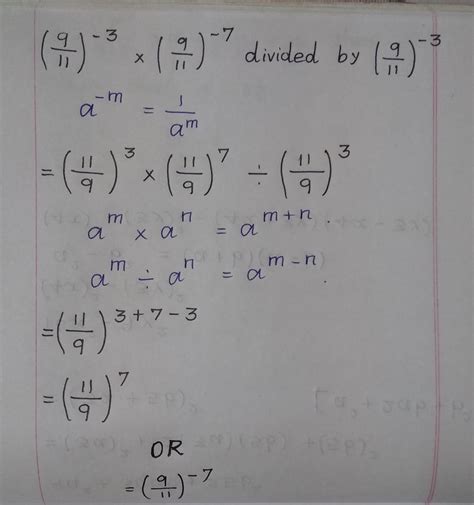 (9/11)^-3 × (9/11)^-7 divided by (9/11)^-3
a^-m = 1/a^m
= (11/9)^3 × (11/9)^7 ÷ (11/9)^3
a^m × a^n = a^m+n.
a^m ÷ a^n = a^m-n.
= (11/9)^3+7-3
= (11/9)^7
OR
= (9/11)^-7